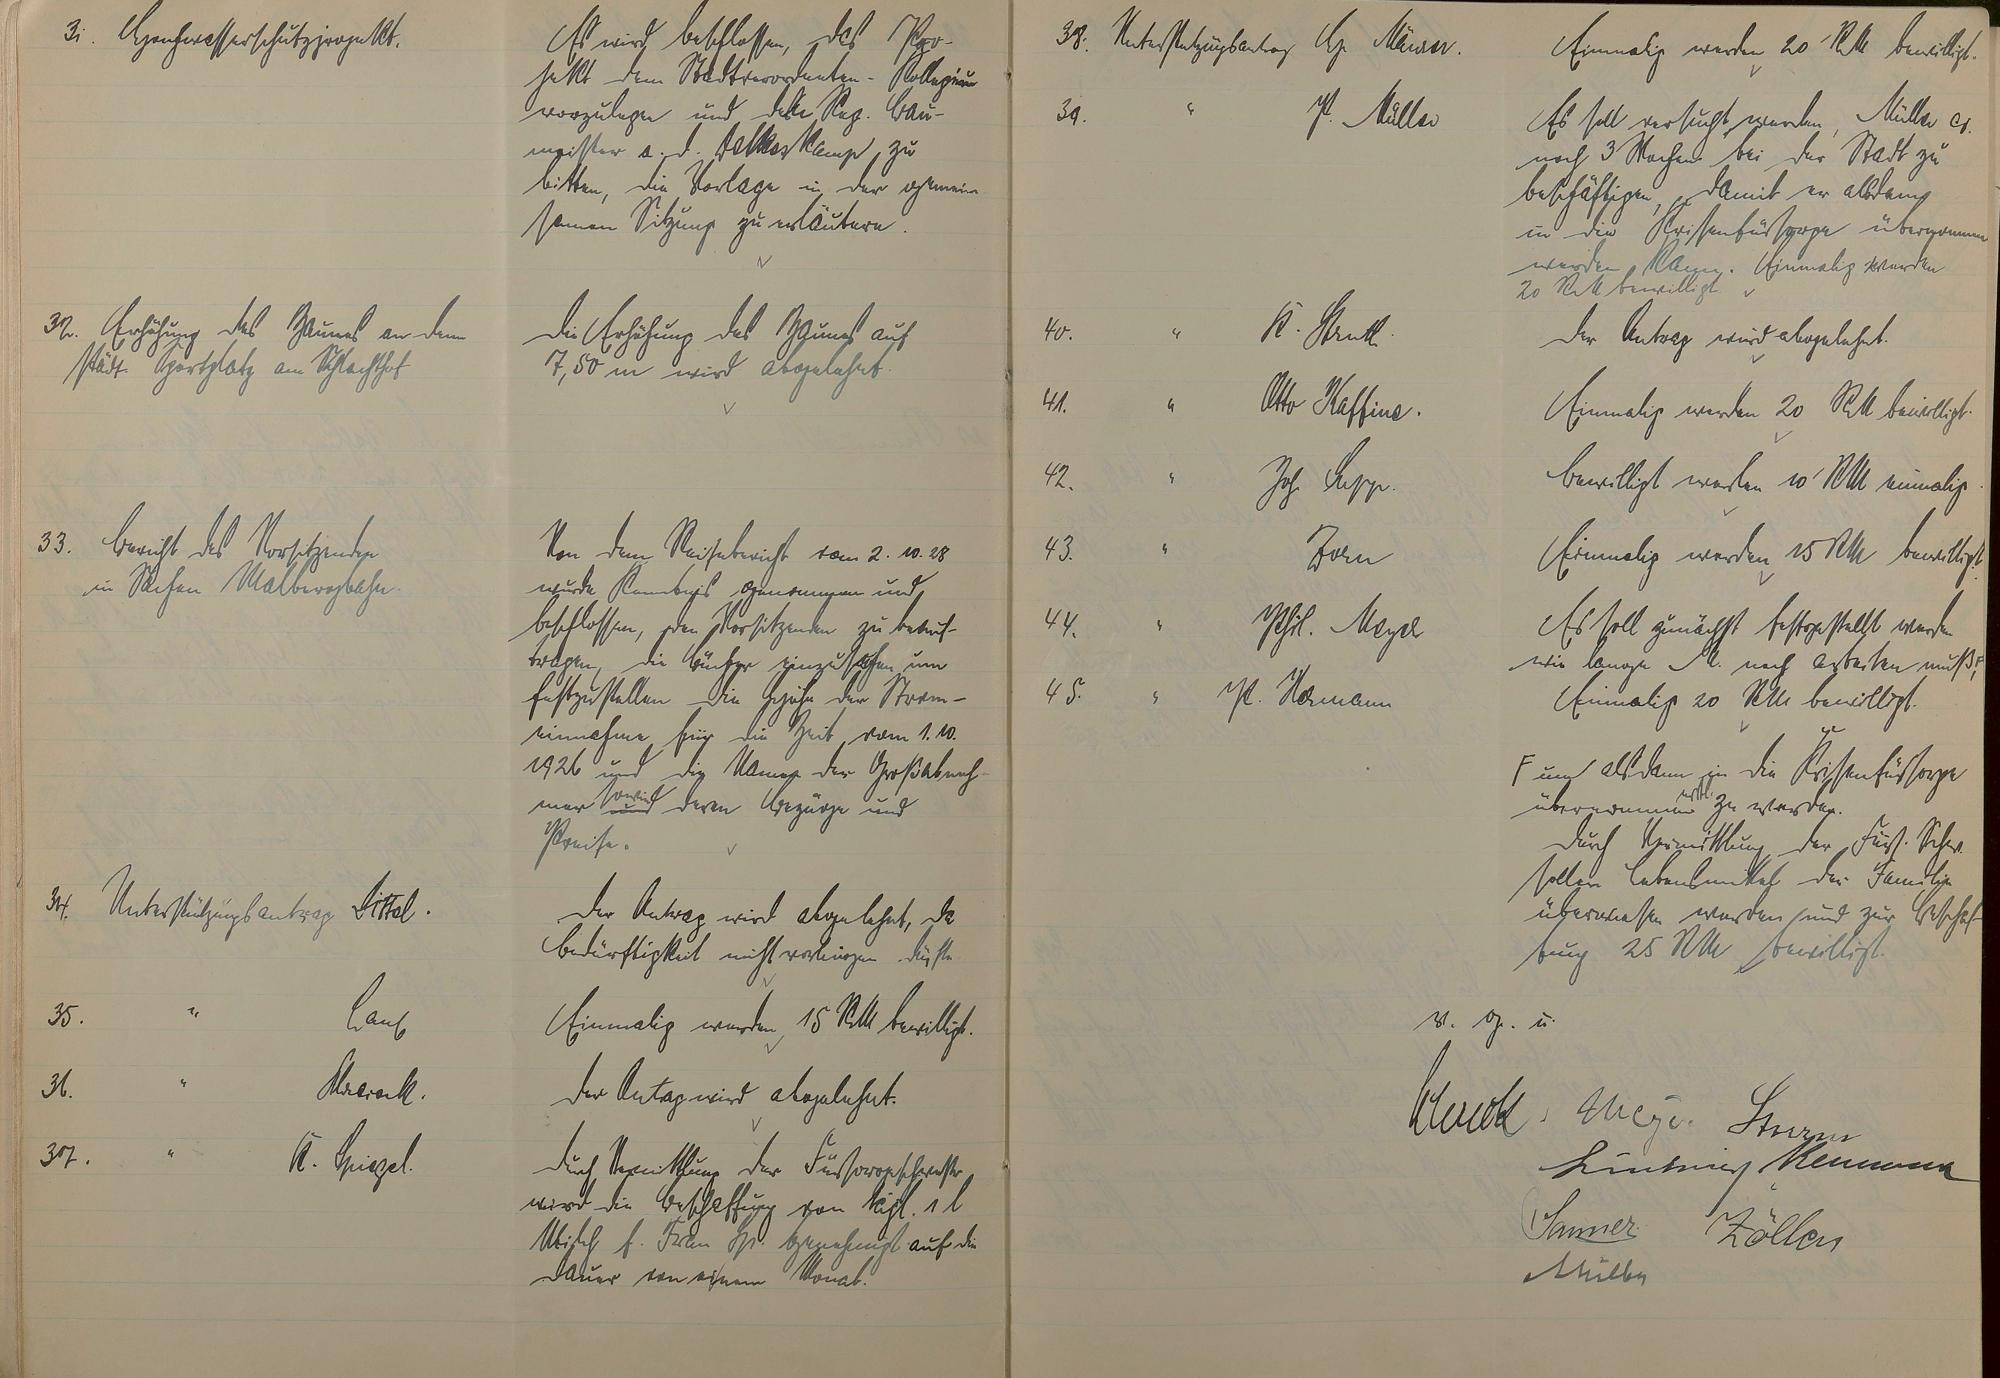 31. Hochwasserschutzprojekt.
Es wird beschlossen, das Pro-
jekt dem Stadtverordneten-Kollegium
vorzulegen und den Reg. Bau-
meister a. d. zu
bitten, die Vorlage in der gemein-
samen Sitzung zu erläutern.
32. Erhöhung des Zaunes an dem
städt. Sportplatz am Schlachthof
Die Erhöhung des Zaunes auf
7,50 m wird abgelehnt.
33. Bericht des Vorsitzenden
in Sachen Malbergbahn.
Von dem Reisebericht vom 2. 10. 28
wurde Kenntnis genommen und
beschlossen, den Vorsitzenden zu beauf-
tragen, die Bücher einzusehen um
festzustellen die Höhe der Strom-
einnahme für die Zeit vom 1. 10.
1926 und die Namen der Großabneh-
mer sowie deren Bezüge und
Preise.
34. Unterstützungsantrag Dittel.
Der Antrag wird abgelehnt, da
Bedürftigkeit nicht vorliegen dürfte
35. " Lauf
Einmalig werden 15 RM bewilligt.
36. "
Der Antrag wird abgelehnt.
37. " K. Spiegel.
Durch Vermittlung der Fürsorgeschwester
wird die Beschaffung von tägl. 1 l
Milch f. Frau Sp. genehmigt auf die
Dauer von einem Monat.
38. Unterstützungsantrag
Einmalig werden 20 RM bewilligt.
39. " P. Müller
Es soll versucht werden, Müller
noch 3 Wochen bei der Stadt zu
beschäftigen, damit er alsdann
in die Krisenfürsorge übernommen
werden kann. Einmalig werden
20 RM bewilligt
40. " K.
Der Antrag wird abgelehnt.
41. " Otto Kaffine.
Einmalig werden 20 RM bewilligt.
42. " Joh. Lupp.
Bewilligt werden 10 RM einmalig.
43. " Zorn
Einmalig werden 15 RM bewilligt.
44. " Phil. Meyer
Es soll zunächst festgestellt werden
wie lange M. noch arbeiten muß F,
45. " P. Hermann
Einmalig 20 RM bewilligt.
F um alsdann in die Krisenfürsorge
übernommen evtl. zu werden.
Durch Vermittlung der Fürs. Schw.
sollen Lebensmittel der Familie
überwiesen werden und zur Beschaf-
fung 25 RM bewilligt.
v. g. u.
Meyer. Sturm
Neumann
Sanner Zöller
Müller